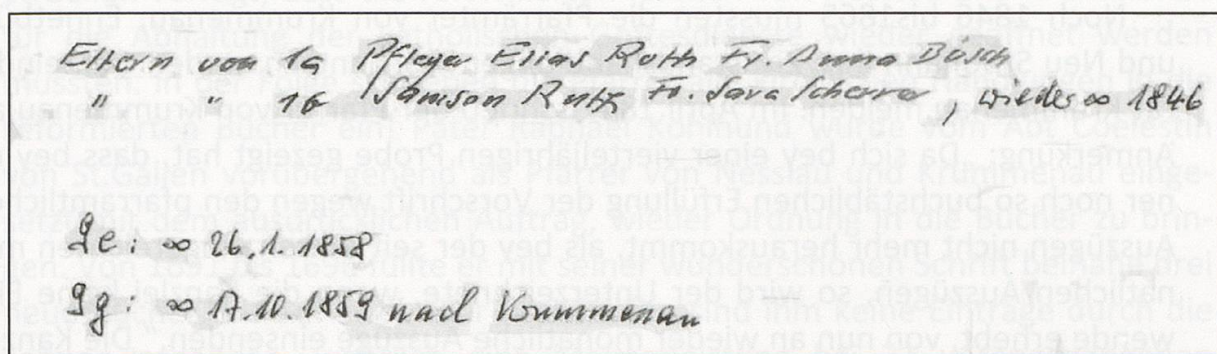 Eltern von 1a Pfleger Elias Roth Fr. Anna Bösch
" " 1b Samson Rutz Fr. Sara Scherrer, wieder ∞ 1846
2e: ∞ 26.1.1858
2g: ∞ 17.10.1859 nach Krummenau